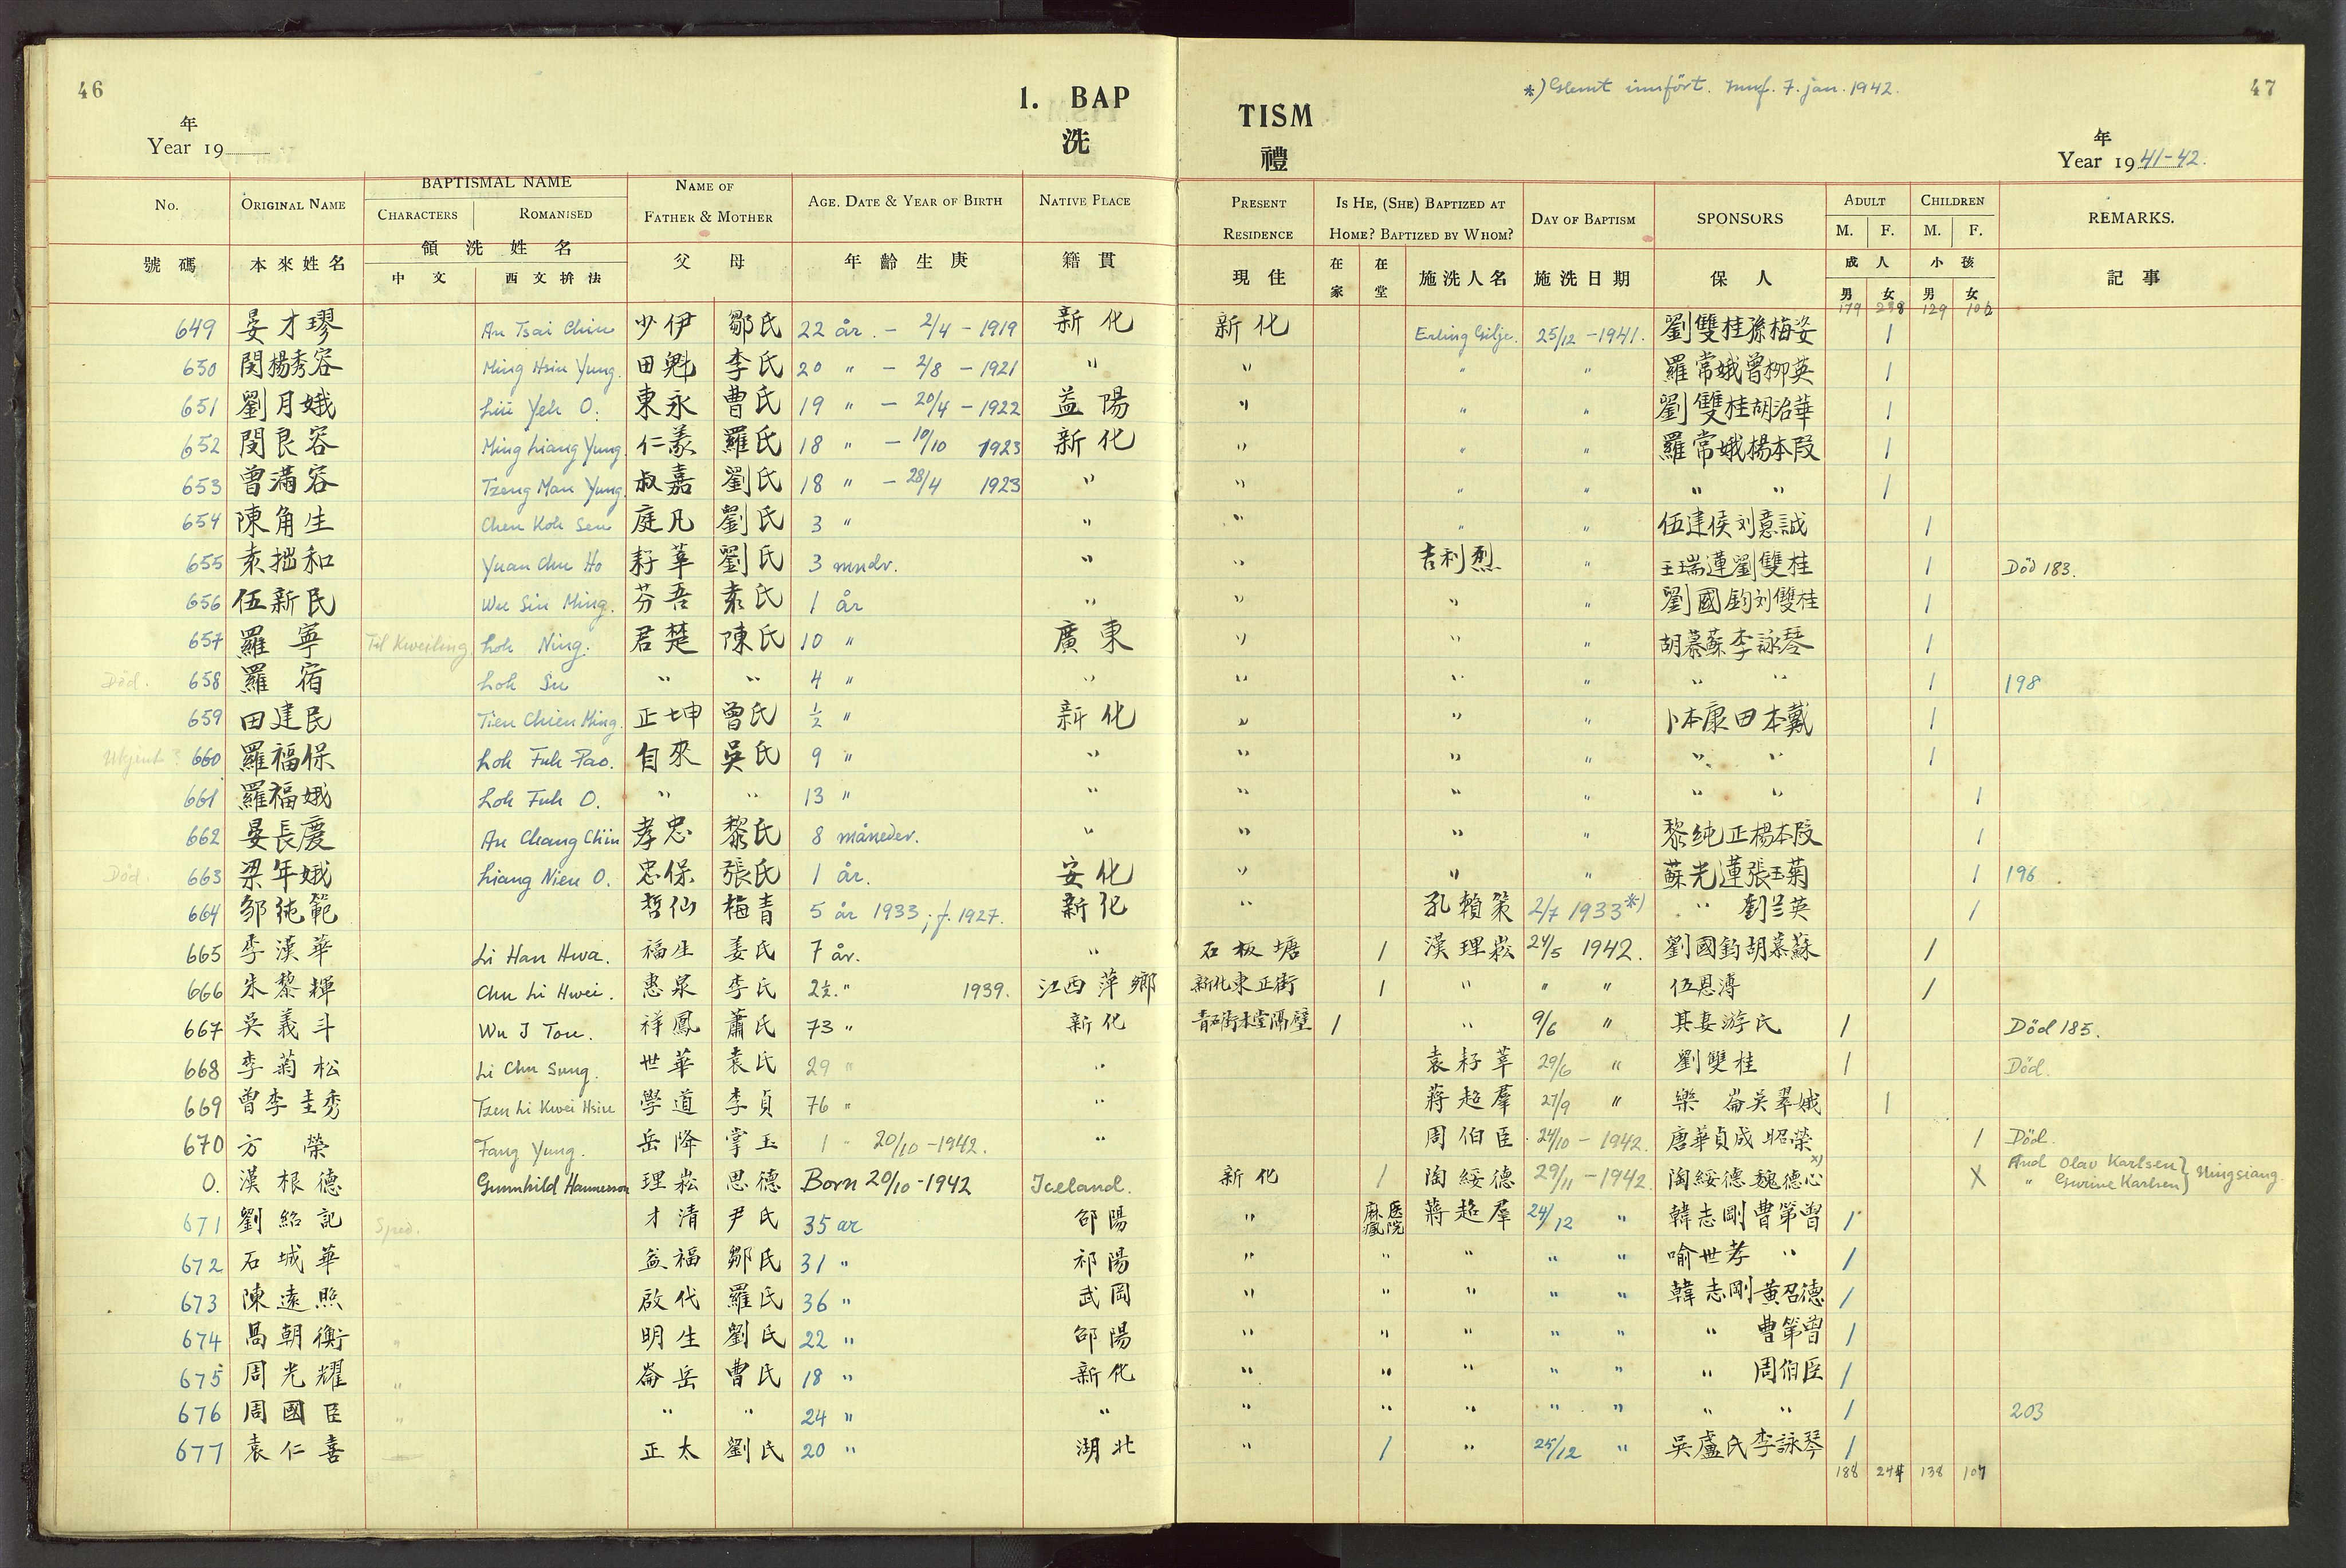 46
1. BAP
TISM
洗
禮
*) Glemt innført. Innf. 7. jan. 1942.
47
年
Year 19
年
Year 1941-42.
No. ORIGINAL NAME BAPTISMAL NAME NAME OF FATHER & MOTHER AGE. DATE & YEAR OF BIRTH NATIVE PLACE PRESENT RESIDENCE IS HE, (SHE) BAPTIZED AT HOME? BAPTIZED BY WHOM? DAY OF BAPTISM SPONSORS ADULT CHILDREN REMARKS.
CHARACTERS ROMANISED M. F. M. F.
號碼 本來姓名 領洗姓名 父母 年齡生庚 籍貫 現住 在家 在堂 施洗人名 施洗日期 保人 成人 小孩 記事
中文 西文拚法 男 女 男 女
179 238 129 106
649 晏才璆 An Tsai Chiu 少伊 鄒氏 22 år. - 2/4 - 1919 新化 新化 Erling Gilje. 25/12 - 1941. 劉雙桂孫梅姿 1
650 閔楊秀容 Ming Hsiu Yung. 田魁 李氏 20 " - 2/8 - 1921 " " " " 羅常娥曾柳英 1
651 劉月娥 Liu Yeh O. 東永 曹氏 19 " - 20/4 - 1922 益陽 " " " 劉雙桂胡治華 1
652 閔良容 Ming Liang Yung. 仁義 羅氏 18 " - 10/10 1923 新化 " " " 羅常娥楊本段 1
653 曾滿容 Tzeng Man Yung. 叔嘉 劉氏 18 " - 28/4 1923 " " " " " " 1
654 陳角生 Chen Koh Sen 庭凡 劉氏 3 " " " " " 伍建侯刘意誠 1
655 袁拙和 Yuan Chu Ho 耔莘 劉氏 3 mndr. " " 吉利烈 " 王瑞蓮劉雙桂 1 Död 183.
656 伍新民 Wu Sin Ming. 芬吾 袁氏 1 år " " " " 劉國鈞刘雙桂 1
657 羅寧 Til Kweiling Loh Ning. 君楚 陳氏 10 " 廣東 " " " 胡慕蘇李詠琴 1
Död. 658 羅宿 Loh Su " " 4 " " " " " " " 1 198
659 田建民 Tien Chien Ming. 正坤 曾氏 ½ " 新化 " " " 卜本康田本戴 1
Ukjent? 660 羅福保 Loh Fuh Pao. 自來 吳氏 9 " " " " " " " 1
661 羅福娥 Loh Fuh O. " " 13 " " " " " " " 1
662 晏長慶 An Chang Chin 孝忠 黎氏 8 måneder. " " " " 黎純正楊本段 1
Död. 663 梁年娥 Liang Nien O. 忠保 張氏 1 år. 安化 " " " 蘇光蓮張玉菊 1 196
664 邹純範 哲仙 梅青 5 år 1933; f. 1927. 新化 " 孔賴策 2/7 1933*) " 劉兰英 1
665 李漢華 Li Han Hwa. 福生 姜氏 7 år. " 石板塘 1 漢理崧 24/5 1942. 劉國鈞胡慕蘇 1
666 朱黎輝 Chu Li Hwei. 惠泉 李氏 2½. " 1939. 江西萍鄉 新化東正街 1 " " " 伍恩溥 1
667 吳義斗 Wu I Tou. 祥鳳 蕭氏 73 " 新化 青石街本堂隔壁 1 " 9/6 " 其妻游氏 1 Död 185.
668 李菊松 Li Chu Sung. 世華 袁氏 29 " " 袁耔莘 29/6 " 劉雙桂 1 Död.
669 曾李圭秀 Tzen Li Kwei Hsiu 學道 李貞 76 " " 蔣超羣 27/9 " 樂崙吳翠娥 1
670 方榮 Fang Yung. 岳降 掌玉 1 " 20/10 - 1942. " 周伯臣 24/10 - 1942. 唐華貞成昭榮 1 Död.
0. 漢根德 Gunnhild Hannesson 理崧 思德 Born 20/10 - 1942 Iceland. 新化 1 陶綏德 29/11 - 1942. 陶綏德魏德心 x) X And Olav Karlsen } Ningsiang.
" Gurine Karlsen }
671 劉紹記 Sped. 才清 尹氏 35 år 邵陽 " 麻瘋医院 蔣超羣 24/12 " 韓志剛曹第曾 1
672 石城華 " 益福 鄒氏 31 " 祁陽 " " " " " 喻世孝 " 1
673 陳遠照 " 啟代 羅氏 36 " 武岡 " " " " " 韓志剛黃召德 1
674 馬朝衡 " 明生 劉氏 22 " 邵陽 " " " " " " 曹第曾 1
675 周光耀 " 崙岳 曹氏 18 " 新化 " " " " " " 周伯臣 1
676 周國臣 " " " 24 " " " " " " " " " 1 203
677 袁仁喜 正太 劉氏 20 " 湖北 " 1 " 25/12 " 吳盧氏李詠琴 1
188 244 138 107